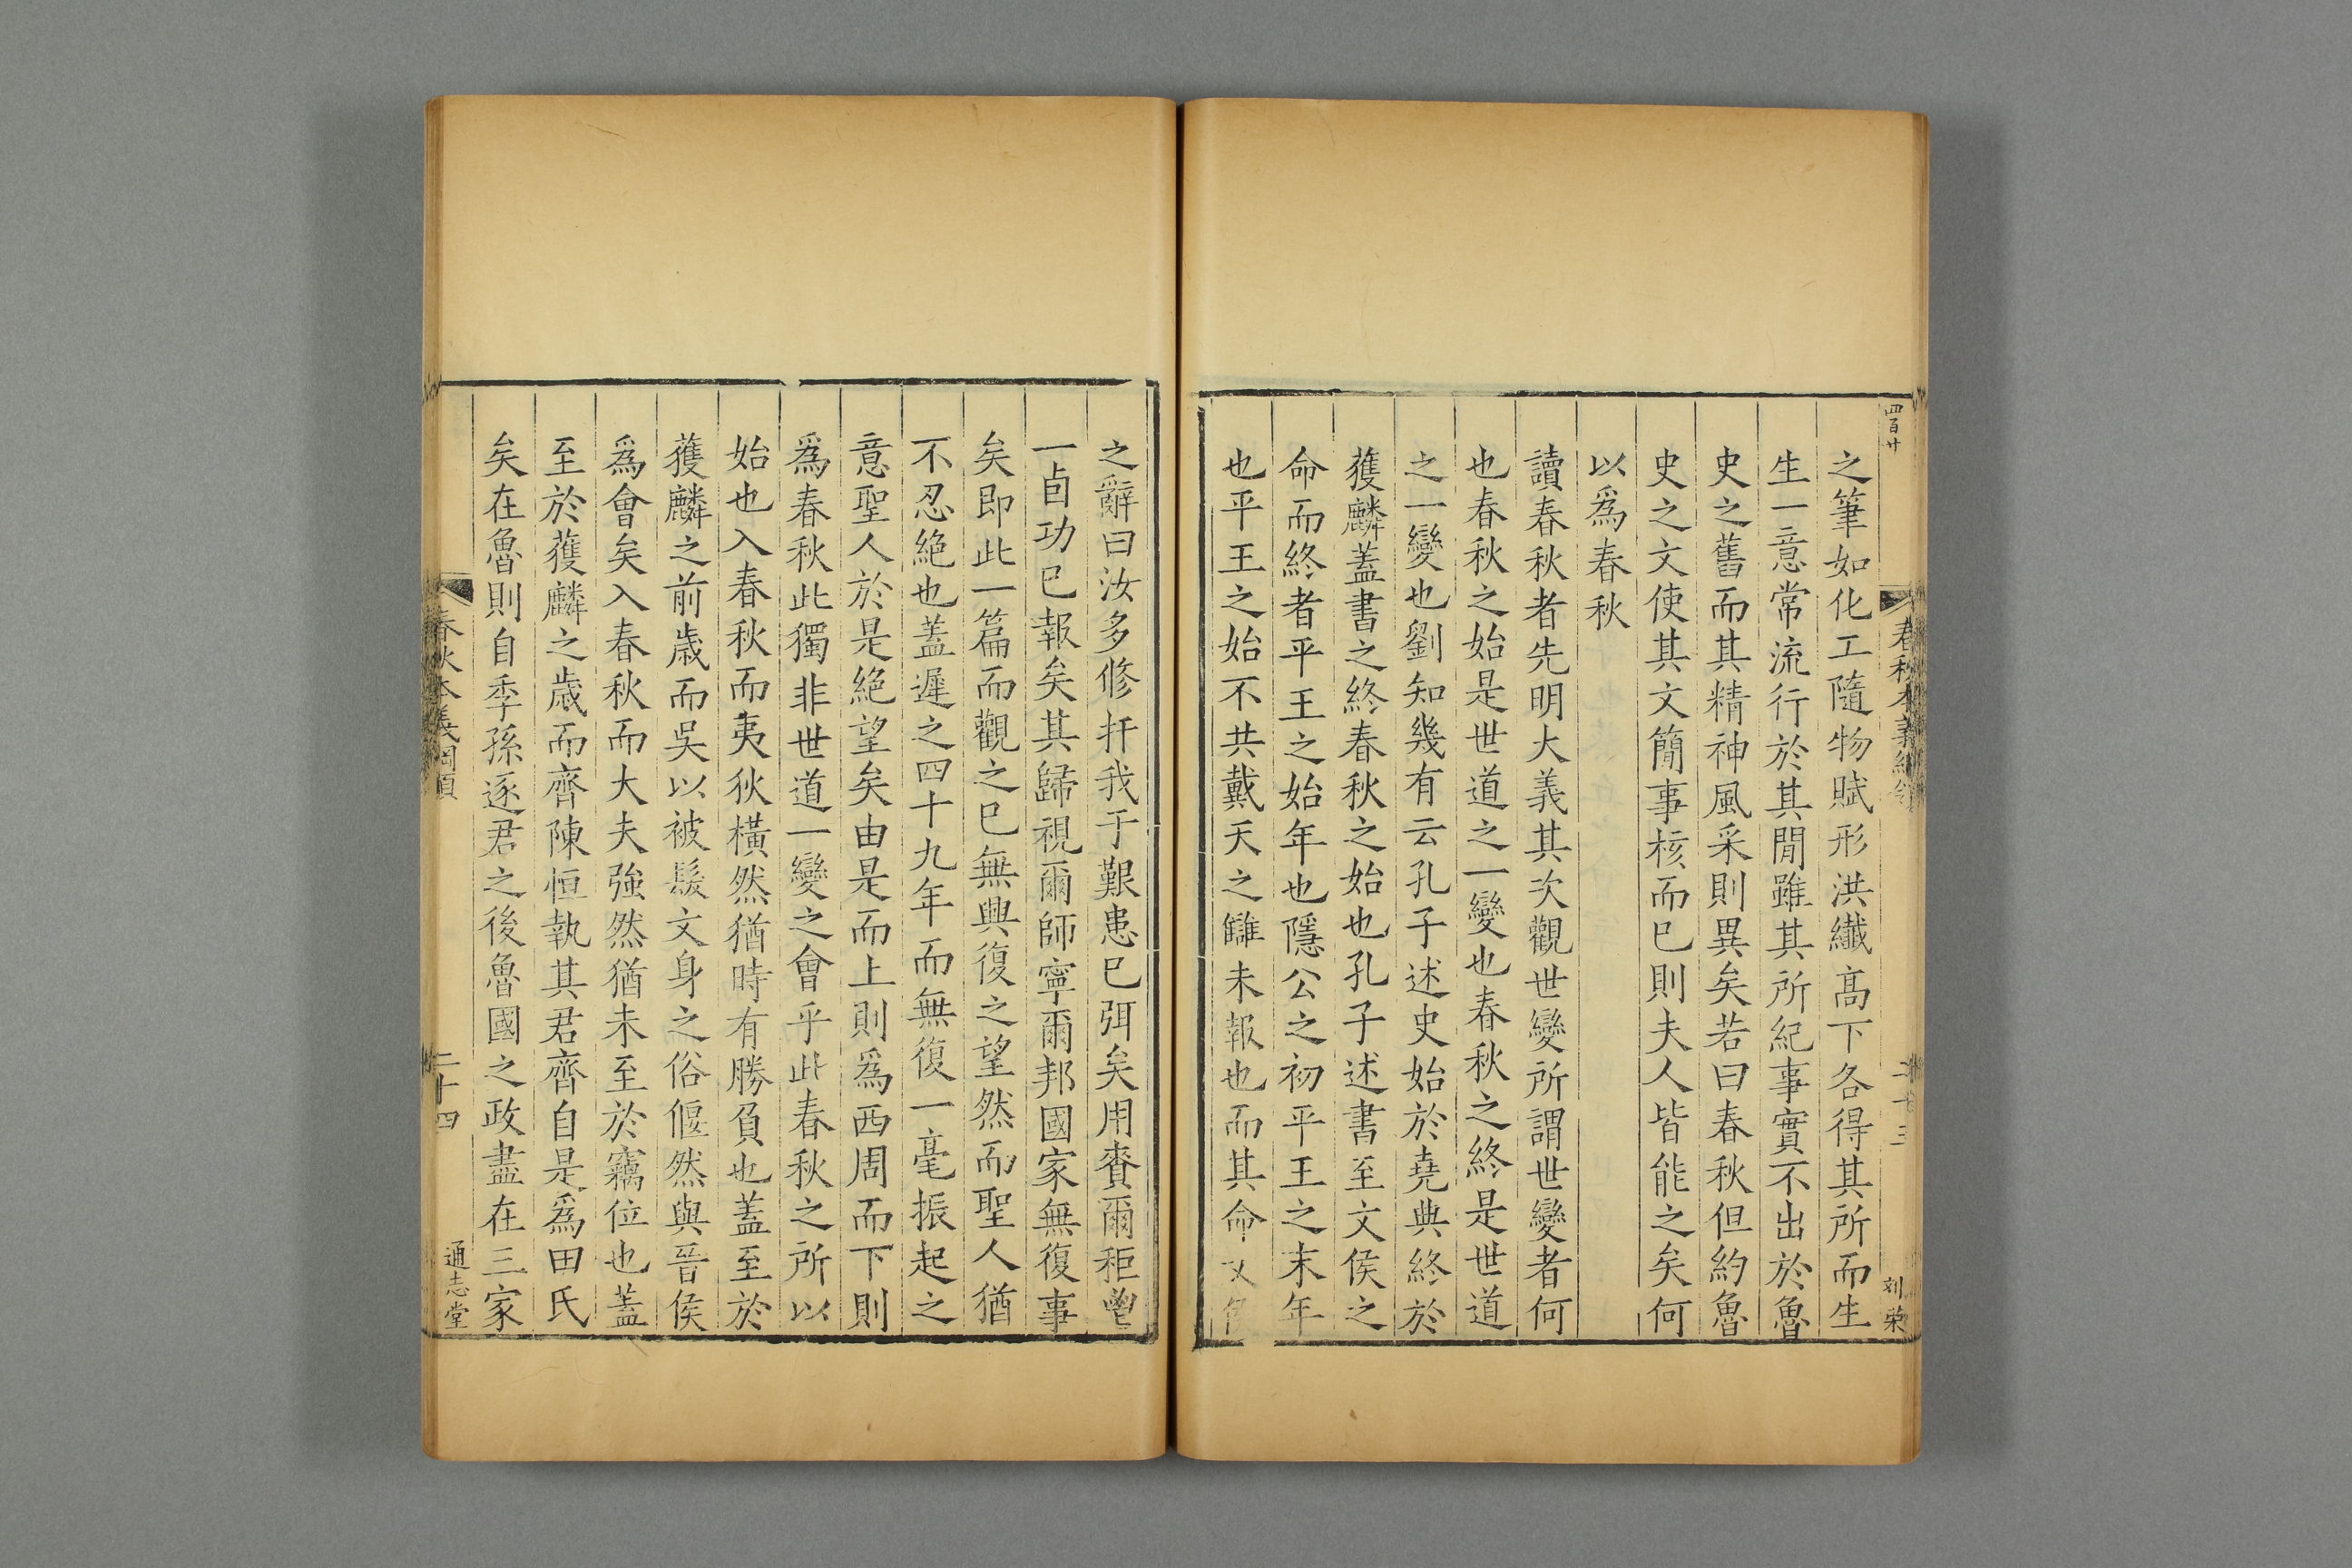 四百廿
之筆如化工隨物賦形洪纖高下各得其所而生
生一意常流行於其閒雖其所紀事實不出於魯
史之舊而其精神風采則異矣若曰春秋但約魯
史之文使其文簡事核而已則夫人皆能之矣何
以爲春秋
讀春秋者先明大義其次觀世變所謂世變者何
也春秋之始是世道之一變也春秋之終是世道
之一變也劉知幾有云孔子述史始於堯典終於
獲麟蓋書之終春秋之始也孔子述書至文侯之
命而終者平王之始年也隱公之初平王之末年
也平王之始不共戴天之讎未報也而其命文侯
之辭曰汝多修扞我于艱患已弭矣用賚爾秬鬯
一卣功已報矣其歸視爾師寧爾邦國家無復事
矣即此一篇而觀之已無興復之望然而聖人猶
不忍絶也蓋遲之四十九年而無復一毫振起之
意聖人於是絶望矣由是而上則爲西周而下則
爲春秋此獨非世道一變之會乎此春秋之所以
始也入春秋而夷狄橫然猶時有勝負也蓋至於
獲麟之前歲而吳以被髮文身之俗偃然與晉侯
爲會矣入春秋而大夫強然猶未至於竊位也蓋
至於獲麟之歲而齊陳恒執其君齊自是爲田氏
矣在魯則自季孫逐君之後魯國之政盡在三家
春秋本義綱領
二十四
通志堂